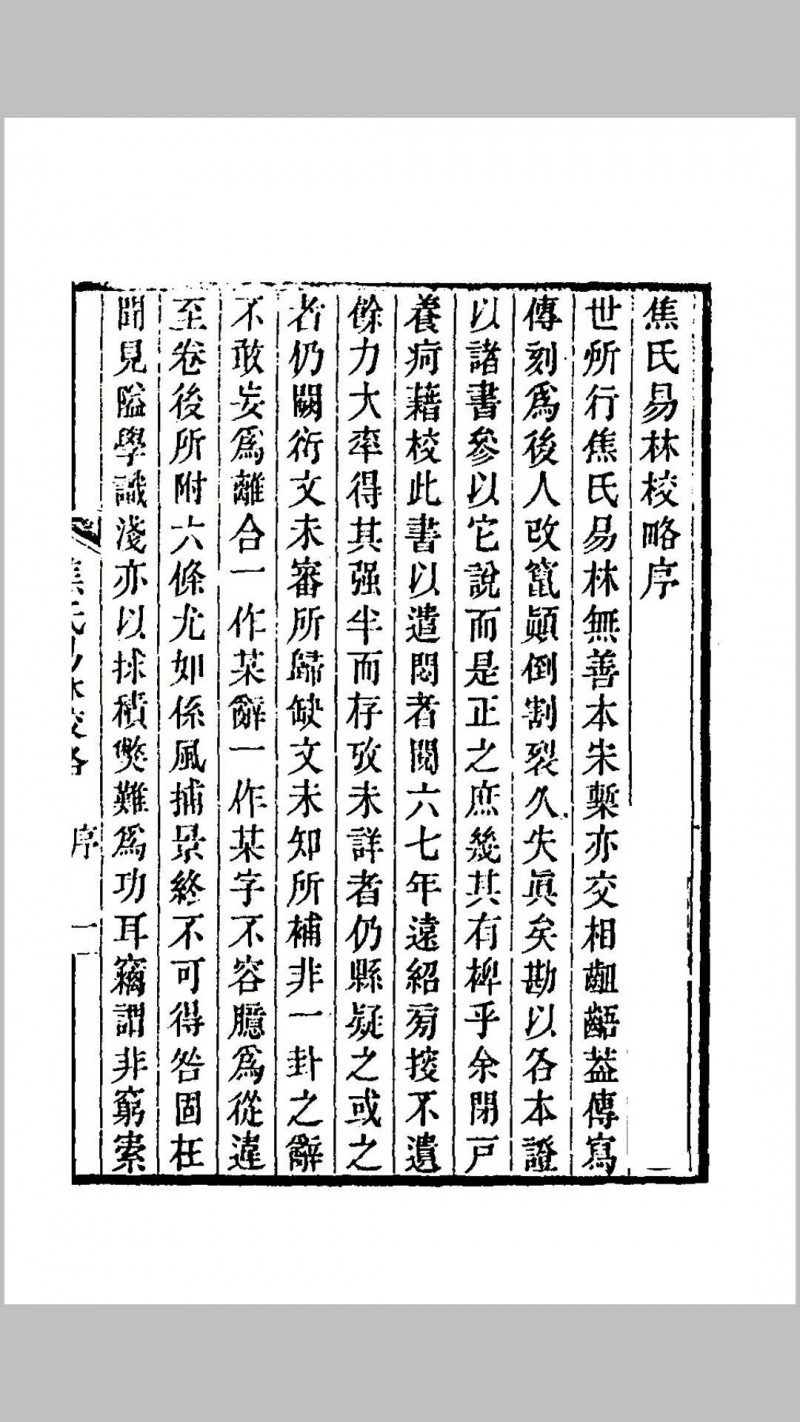 焦氏易林校略序
世所行焦氏易林無善本宋槧亦交相齟齬葢傳寫
傳刻爲後人改竄顚倒割裂久失眞矣勘以各本證
以諸書參以它說而是正之庶幾其有裨乎余閉戸
養疴藉校此書以遣悶者閱六七年遠紹旁搜不遺
餘力大率得其强半而存攷未詳者仍縣疑之或之
者仍闕衍文未審所歸缺文未知所補非一卦之辭
不敢妄爲離合一作某辭一作某字不容臆爲從違
至卷後所附六條尤如係風捕景終不可得咎固在
聞見隘學識淺亦以捄積獘難爲功耳竊謂非窮索
焦氏易林校略 序 一